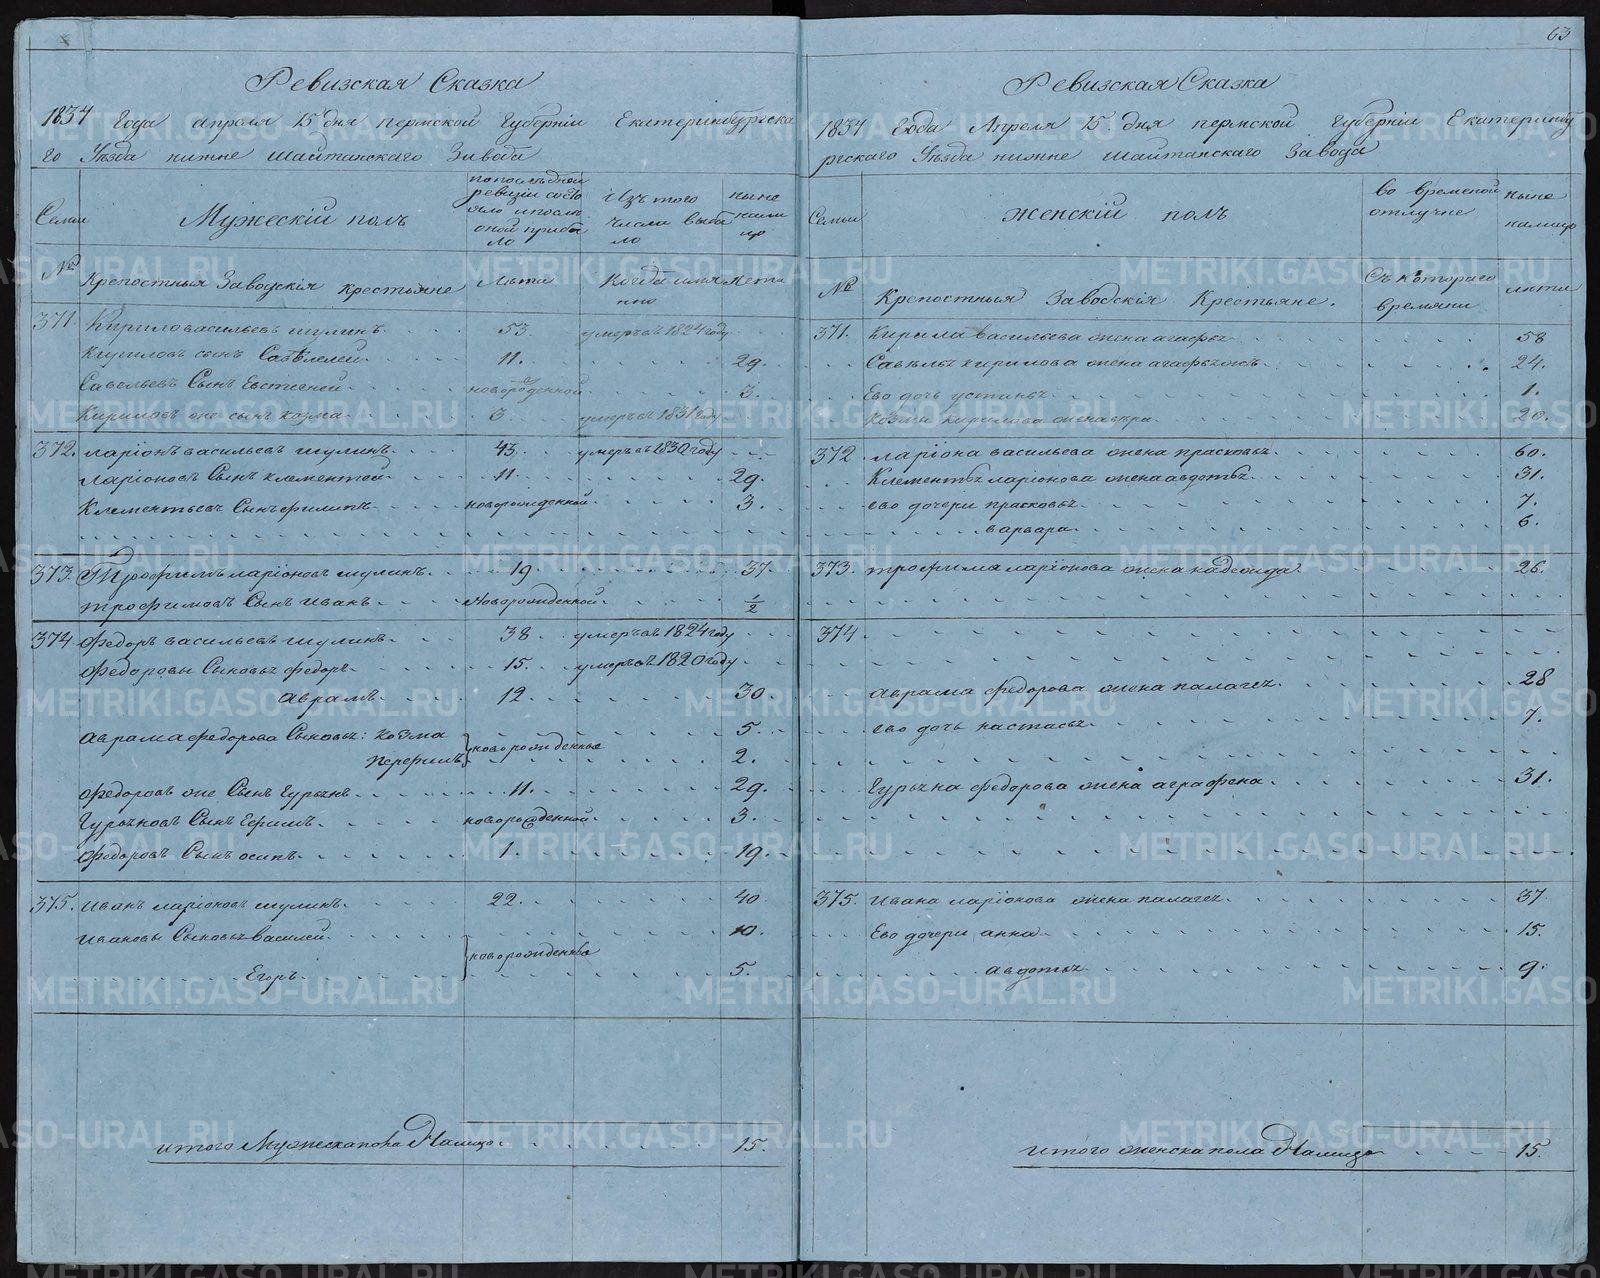 63
Ревизская Сказка
1834 Года апреля 15 дня пермской Губернiи Екатеринбургска
го Уѣзда нижне шайтанскаго Завода
Семьи
Мужескiй полъ
по последней ревизiи состо
яло и после
оной прибы
ло
Изъ того
числа выбы
ло
ныне
нали
цо
№
Крепостныя Заводскiя крестьяне
Лѣта
Когда имянно
Лета
371. Кирило васильевъ шулинъ 53. умеръ въ 1824 году
Кириловъ сынъ Савелей 11. 29.
Савельевъ Сынъ Евстегней новорожденной 3.
Кириловъ же сынъ козма 3 умеръ въ 1831 году
372. ларiонъ васильевъ шулинъ 43. умеръ въ 1830 году
ларiоновъ Сынъ клементей 11. 29.
Клементьевъ Сынъ филипъ новорожденной 3.
373. Трофимъ ларiоновъ шулинъ 19 37.
трофимовъ Сынъ иванъ Новорожденной 1/2
374 Федоръ васильевъ шулинъ 38. умеръ въ 1824 году
Федоровы Сыновья федоръ 15. умеръ въ 1820 году
аврамъ 12. 30.
аврама федорова Сыновья: козма 5.
перфилъ новорожденные 2.
федоровъ же Сынъ Гурьянъ 11. 29.
Гурьяновъ Сынъ Ефимъ новорожденной 3.
Федоровъ Сынъ осипъ 1. 19.
375. иванъ ларiоновъ шулинъ 22. 40
ивановы Сыновья василей 10.
новорожденные
Егоръ 5.
итого Мужеска пола Налицо 15.
Ревизская Сказка
1834 Года Апреля 15 дня пермской Губернiи Екатеринбу
ргскаго Уѣзда нижне шайтанскаго Завода
Семьи
Женскiй полъ
во временой
отлучке
ныне
налицо
№
Крепостныя Заводскiя Крестьяне.
Съ котораго
времяни
лѣта
371. Кирила васильева жена агафья 58
Савелья кирилова жена агафья 24.
Ево дочь устинья 1.
Козмы кирилова жена 20.
372 ларiона васильева жена прасковья 60.
Клементья ларiонова жена авдотья 31.
ево дочери прасковья 7.
варвара 6.
373. трофима ларiонова жена надежда 26.
374
аврама федорова жена палагея 28
ево дочь настасья 7.
Гурьяна федорова жена аграфена 31.
375. ивана ларiонова жена палагея 37
Ево дочери анна 15.
авдотья 9.
итого женска пола Налицо 15.
METRIKI.GASO-URAL.RU